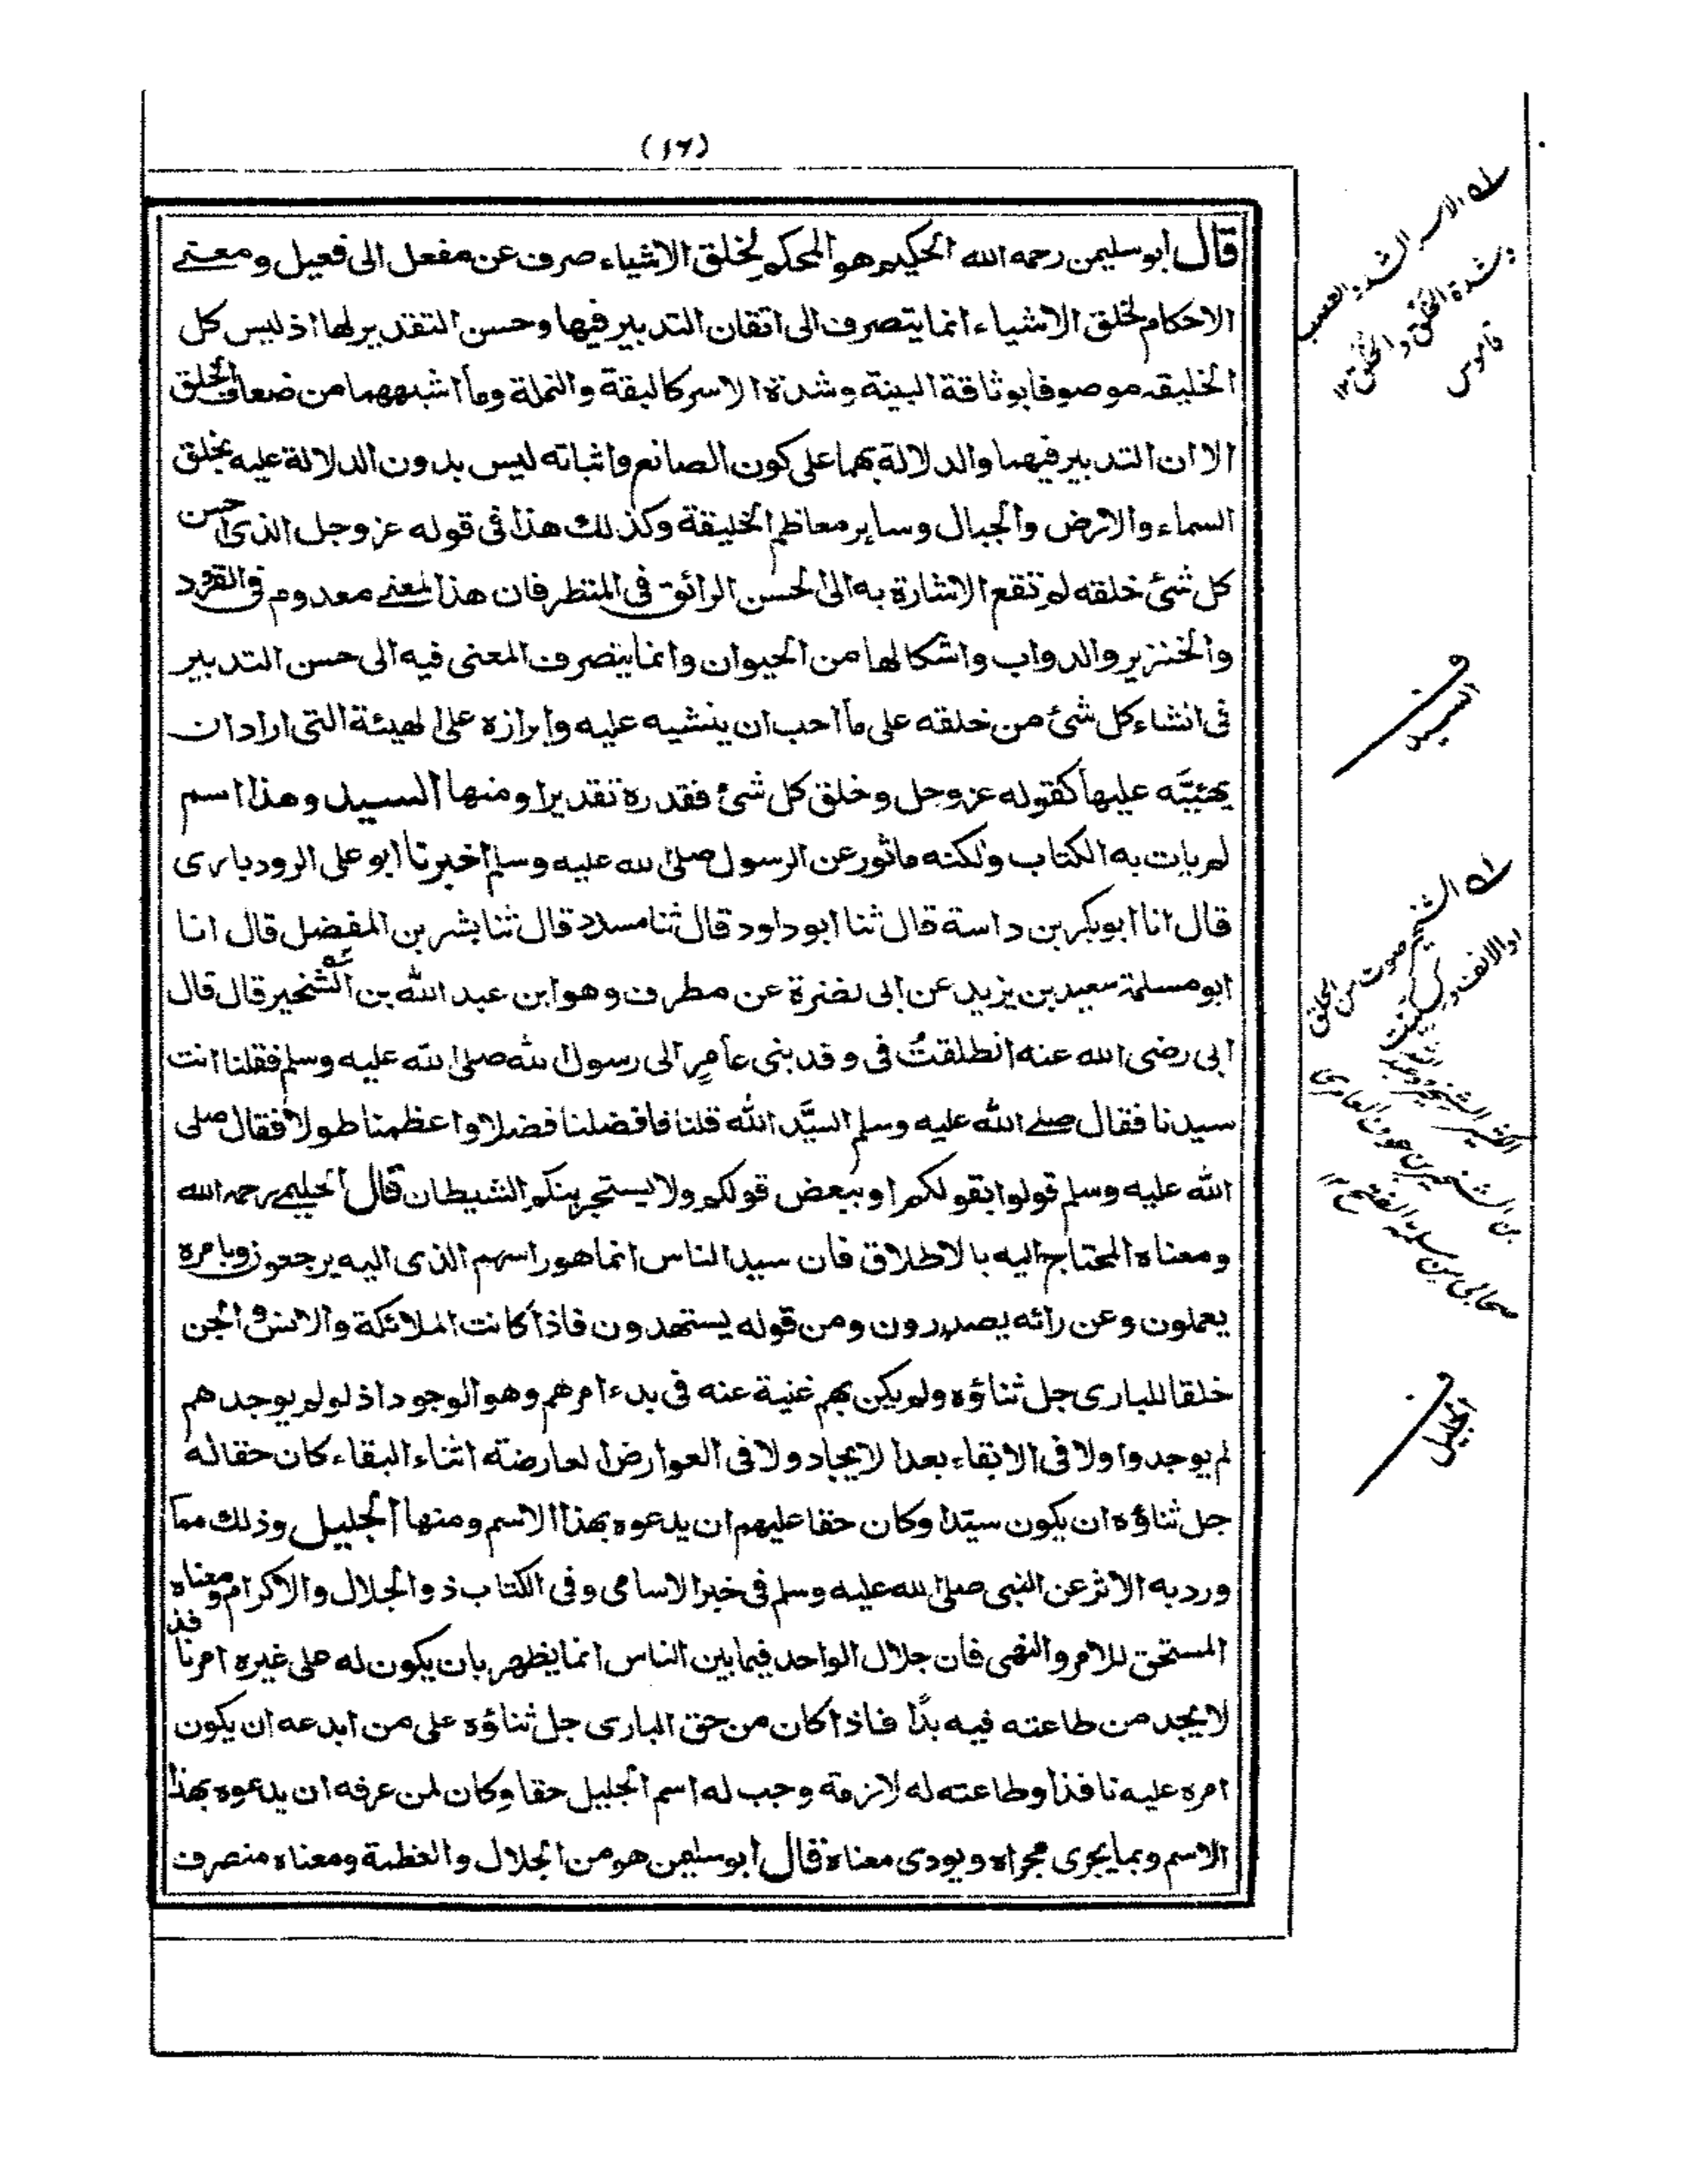 (١٦)
قال ابو سليمن رحمه الله الحكيم هو المحكم لخلق الاشياء صرف عن مفعل الى فعيل و معنے
الاحكام لخلق الاشياء انما يتصرف الى اتقان التدبير فيها وحسن التقدير لها اذ ليس كل
الخليقه موصوفا بوثاقة البنية وشدة الاسر كالبقة والنملة وما اشبههما من ضعاف الخلق
الا ان التدبير فيهما والدلالة بهما على كون الصانع واثباته ليس بدون الدلالة عليه بخلق
السماء والارض والجبال وساير معاظم الخليقة وكذلك هذا فى قوله عز وجل الذى احسن
كل شئ خلقه لم تقع الاشارة به الى الحسن الرائق فى المنظر فان هذا المعنے معدوم فى القرد
والخنزير والدواب واشكالها من الحيوان وانما ينصرف المعنى فيه الى حسن التدبير
فى انشاء كل شئ من خلقه على ما احب ان ينشيه عليه وابرازه على الهيئة التى اراد ان
يهيّئه عليها كقوله عز وجل وخلق كل شئ فقدره تقديرا ومنها السيد وهذا اسم
لم يات به الكتاب ولكنه ماثور عن الرسول صلى الله عليه وسلم اخبرنا ابو على الرودبارى
قال انا ابو بكر بن داسة قال ثنا ابو داود قال ثنا مسدد قال ثنا بشر بن المفضل قال انا
ابو مسلمة سعيد بن يزيد عن ابى نضرة عن مطرف وهو ابن عبد الله بن الشخير قال قال
ابى رضى الله عنه انطلقتُ فى وفد بنى عامرٍ الى رسول الله صلى الله عليه وسلم فقلنا انت
سيدنا فقال صلے الله عليه وسلم السيّد الله قلنا فافضلنا فضلا واعظمنا طولا فقال صلى
الله عليه وسلم قولوا بقولكم او ببعض قولكم ولا يستجرينكم الشيطان قال الحليمے رحمه الله
ومعناه المحتاج اليه بالاطلاق فان سيد الناس انما هو راسهم الذى اليه يرجعون وبامره
يعملون وعن رائه يصدرون ومن قوله يستهدون فاذا كانت الملائكة والانس والجن
خلقا للبارى جل ثناؤه ولم يكن بهم غنية عنه فى بدء امرهم وهو الوجود اذ لو لم يوجدهم
لم يوجدوا ولا فى الابقاء بعد الايجاد ولا فى العوارض العارضة اثناء البقاء كان حقا له
جل ثناؤه ان يكون سيّدا وكان حقا عليهم ان يدعوه بهذا الاسم ومنها الجليل وذلك مما
ورد به الاثر عن النبى صلى الله عليه وسلم فى خبر الاسامى وفى الكتاب ذو الجلال والاكرام ومعناه
المستحق للامر والنهى فان جلال الواحد فيما بين الناس انما يظهر بان يكون له على غيره امر نافذ
لا يجد من طاعته فيه بدًّا فاذا كان من حق البارى جل ثناؤه على من ابدعه ان يكون
امره عليه نافذا وطاعته له لازمة وجب له اسم الجليل حقا وكان لمن عرفه ان يدعوه بهذا
الاسم وبما يجرى مجراه ويودى معناه قال ابو سليمن هو من الجلال والعظمة ومعناه منصرف
الاسر الشد والعصب
وشدة الخلق والخلق ١٢
قاموس
السيد
الشخير صوت من الحلق
او الانف
بن الشخير بن عوف العامرى
صحابى من مسلمة الفتح ١٢
الجليل